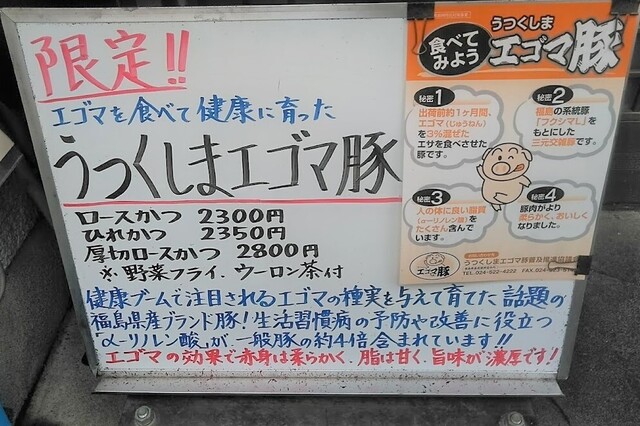 限定!!
エゴマを食べて健康に育った
うつくしまエゴマ豚
ロースかつ 2300円
ひれかつ 2350円
厚切ロースかつ 2800円
※野菜フライ、ウーロン茶付
健康ブームで注目されるエゴマの種実を与えて育てた話題の
福島県産ブランド豚!生活習慣病の予防や改善に役立つ
「α-リノレン酸」が一般豚の約4倍含まれています!!
エゴマの効果で赤身は柔らかく、脂は甘く、旨味が濃厚です!
食べて
みよう
うつくしま
エゴマ豚
秘密1
出荷前約1ヶ月間、
エゴマ(じゅうねん)
を3%混ぜた
エサを食べさせた
豚です。
秘密2
福島の系統豚
「フクシマL」を
もとにした
三元交雑豚です。
秘密3
人の体に良い脂質
(α-リノレン酸)を
たくさん含んで
います。
秘密4
豚肉がより
柔らかく、おいしく
なりました。
エゴマ豚
うつくしまエゴマ豚普及推進協議会
TEL.024-522-4222